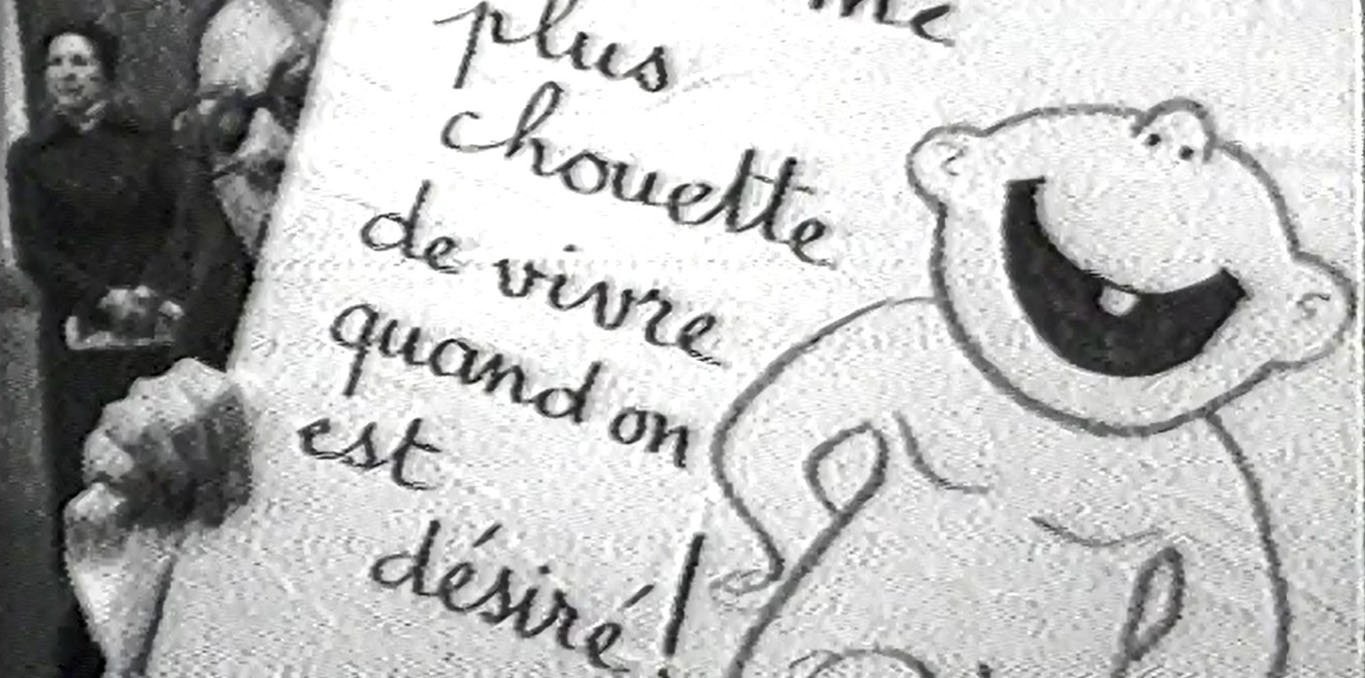 plus
chouette
de vivre
quand on
est
désiré !